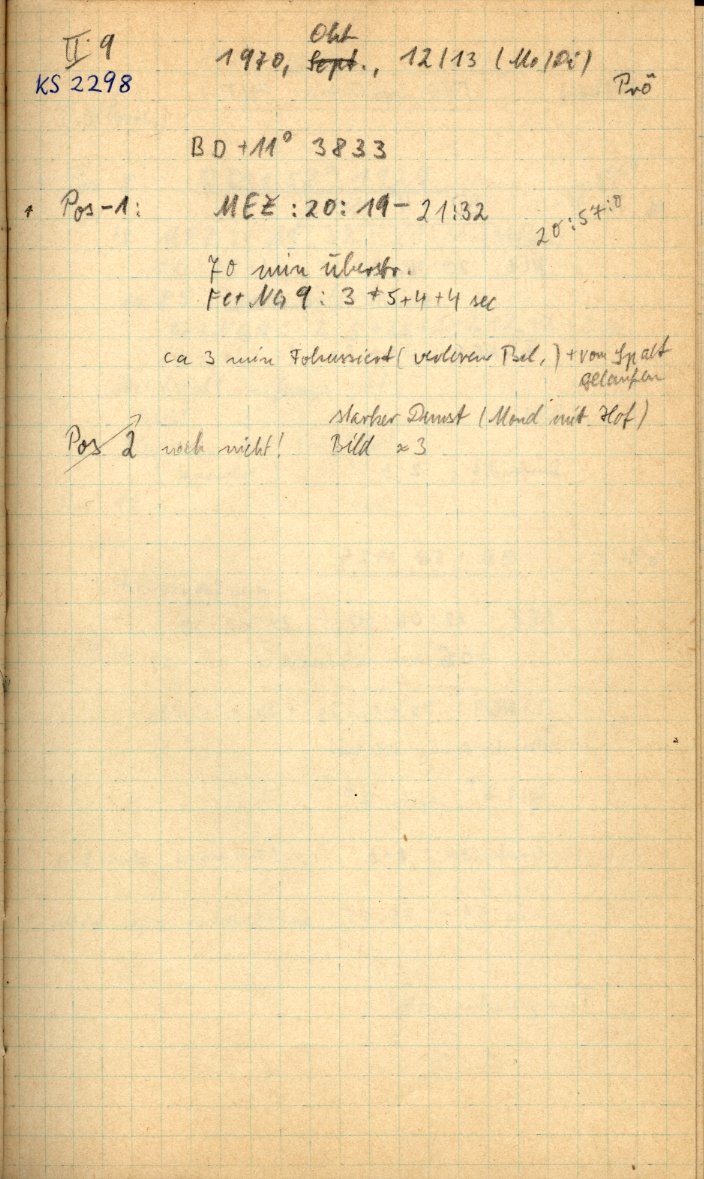 II. 9
Okt
1970, Sept., 12/13 (Mo/Di)
KS 2298
Prö
BD +11° 3833
Pos-1: MEZ: 20:19 - 21:32 20:57:0
70 min überstr.
Fe+NG 9: 3+5+4+4 sec
ca 3 min Fokussiert (verlorene Bel.) + vom Spalt
gelaufen
starker Dunst (Mond mit Hof)
Pos 2 noch nicht! Bild ≈ 3